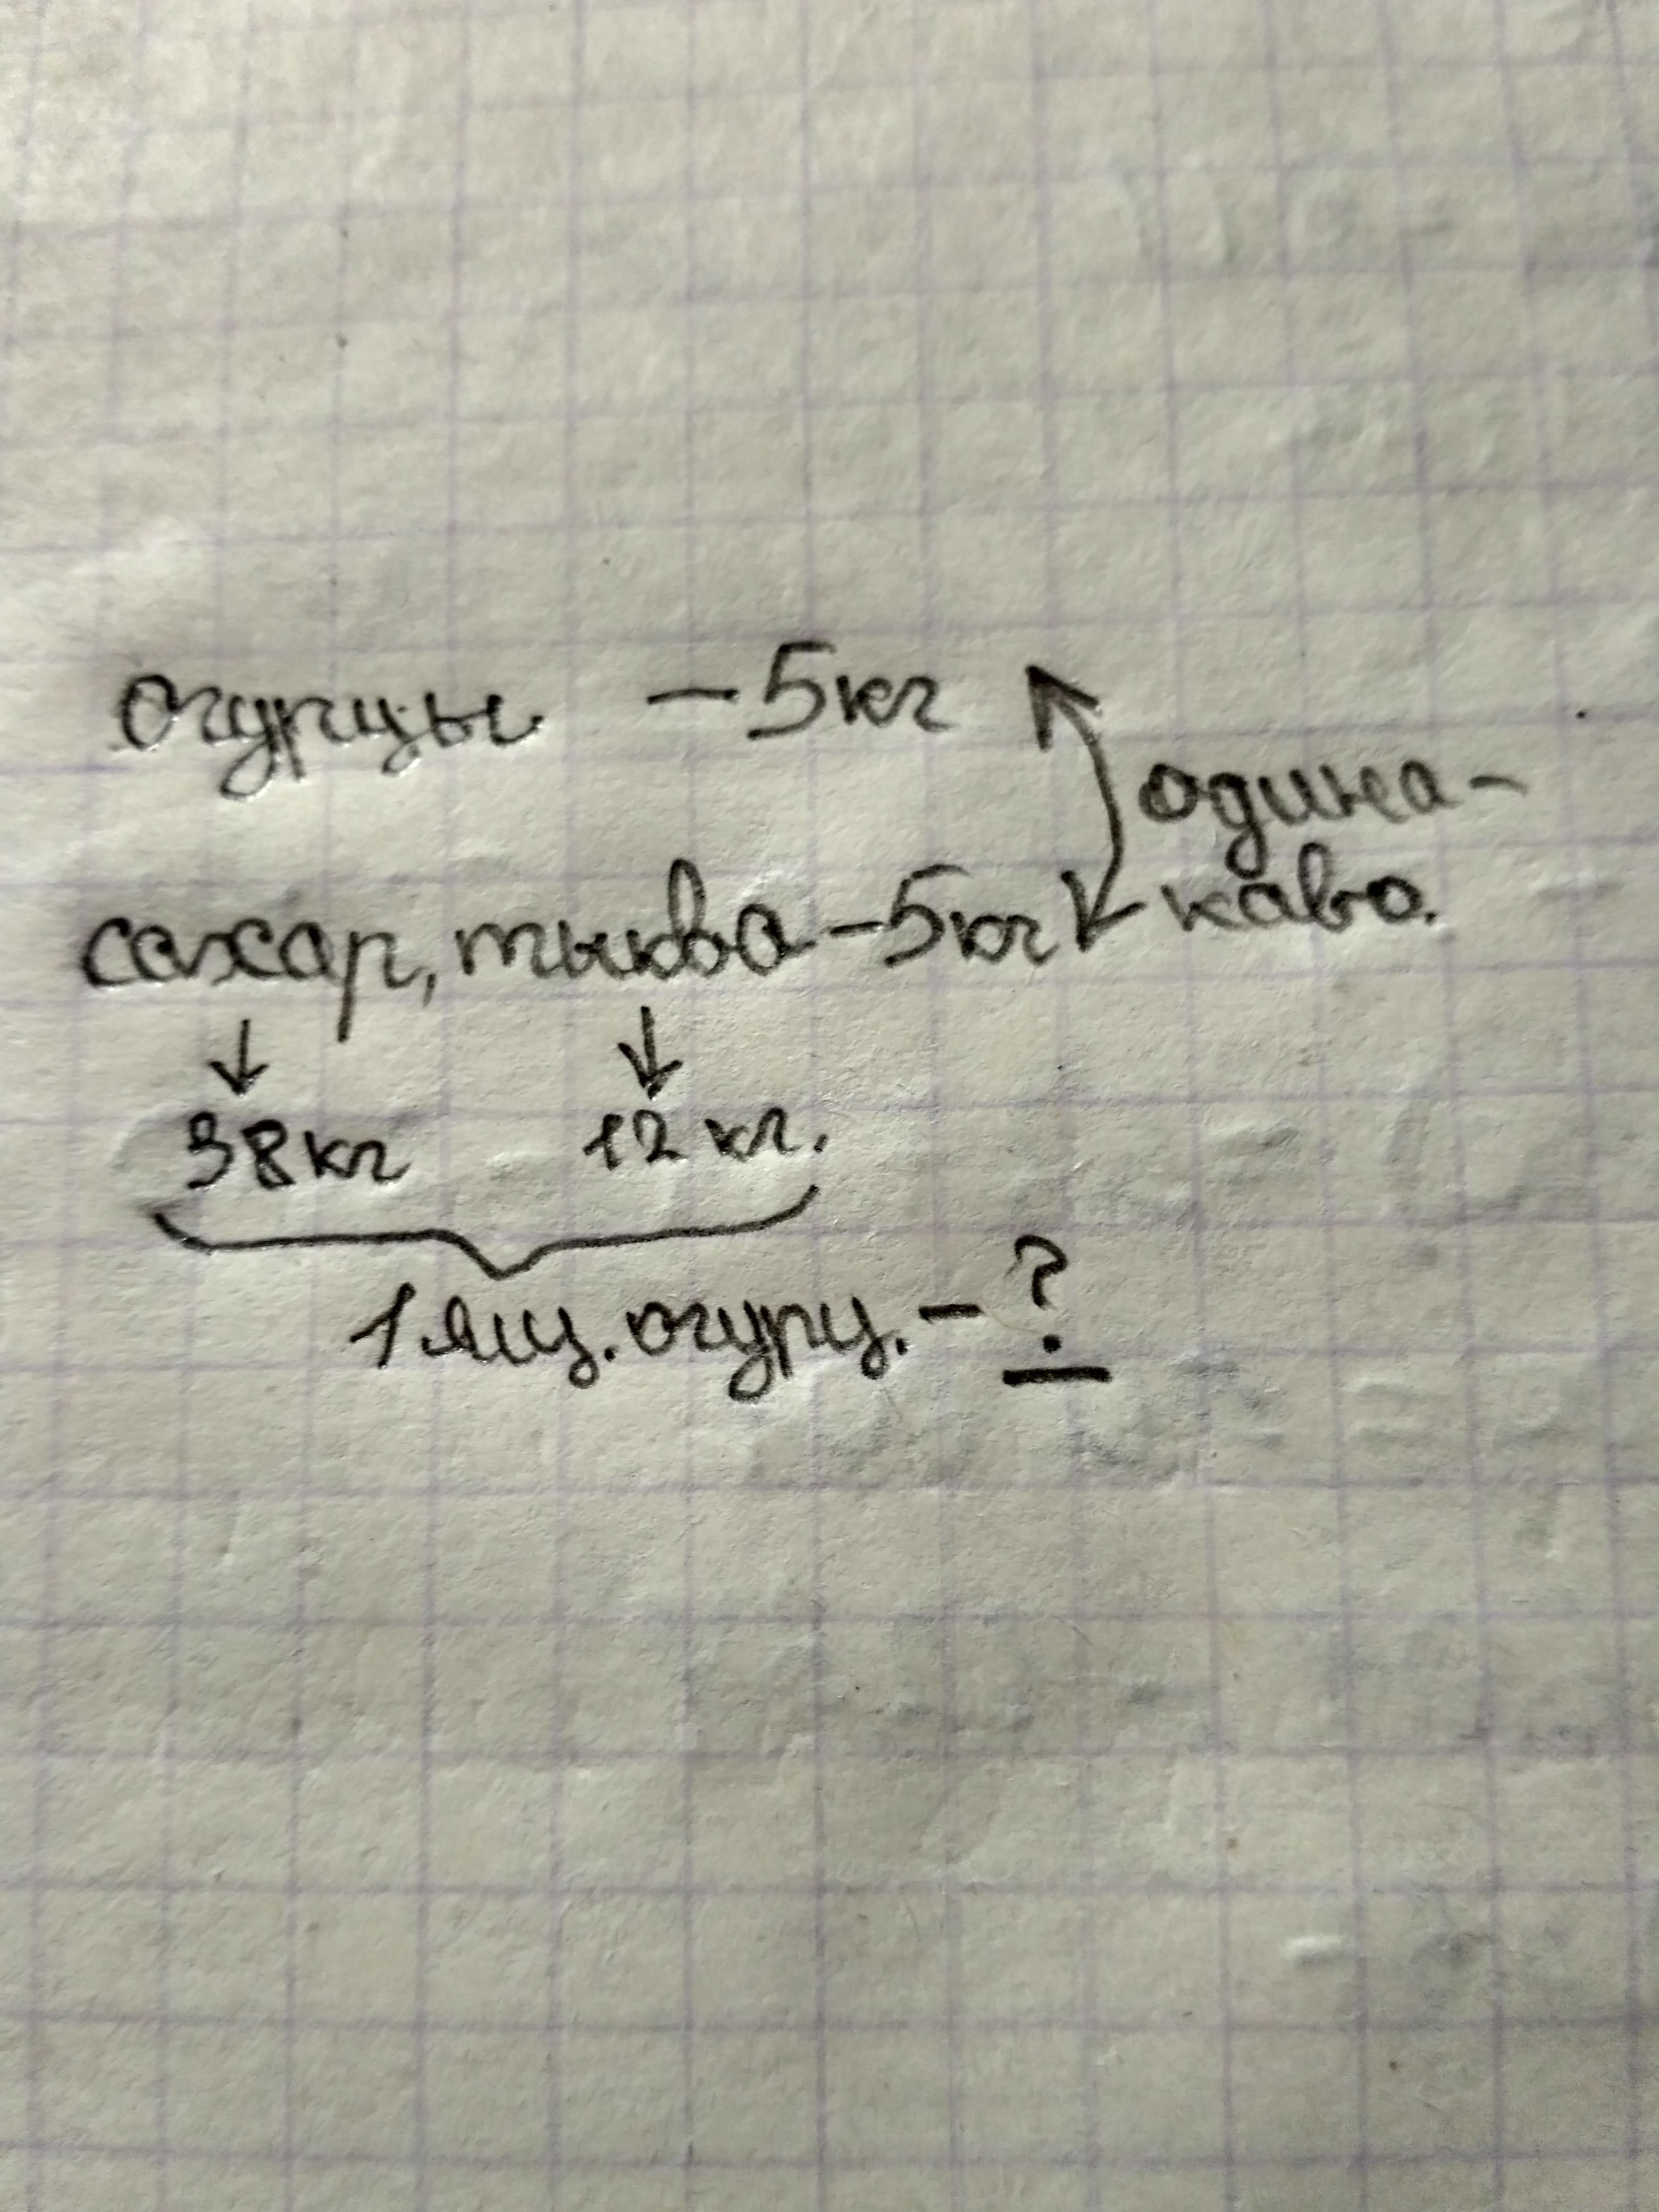 огурцы - 5кг
одина-
сахар, тыква - 5кг каво.
38кг 12 кг.
1 ящ. огурц. - ?